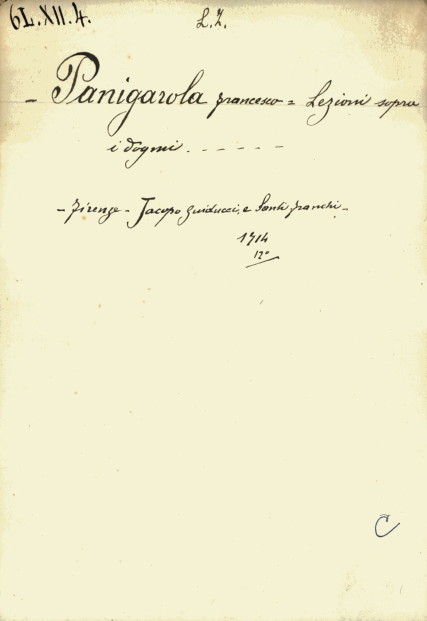 6L.XII.4.
L.Z.
- Panigarola Francesco = Lezioni sopra
i dogmi. - - - - -
- Firenze - Jacopo Guiducci, e Santi Franchi -
1714
12º
C